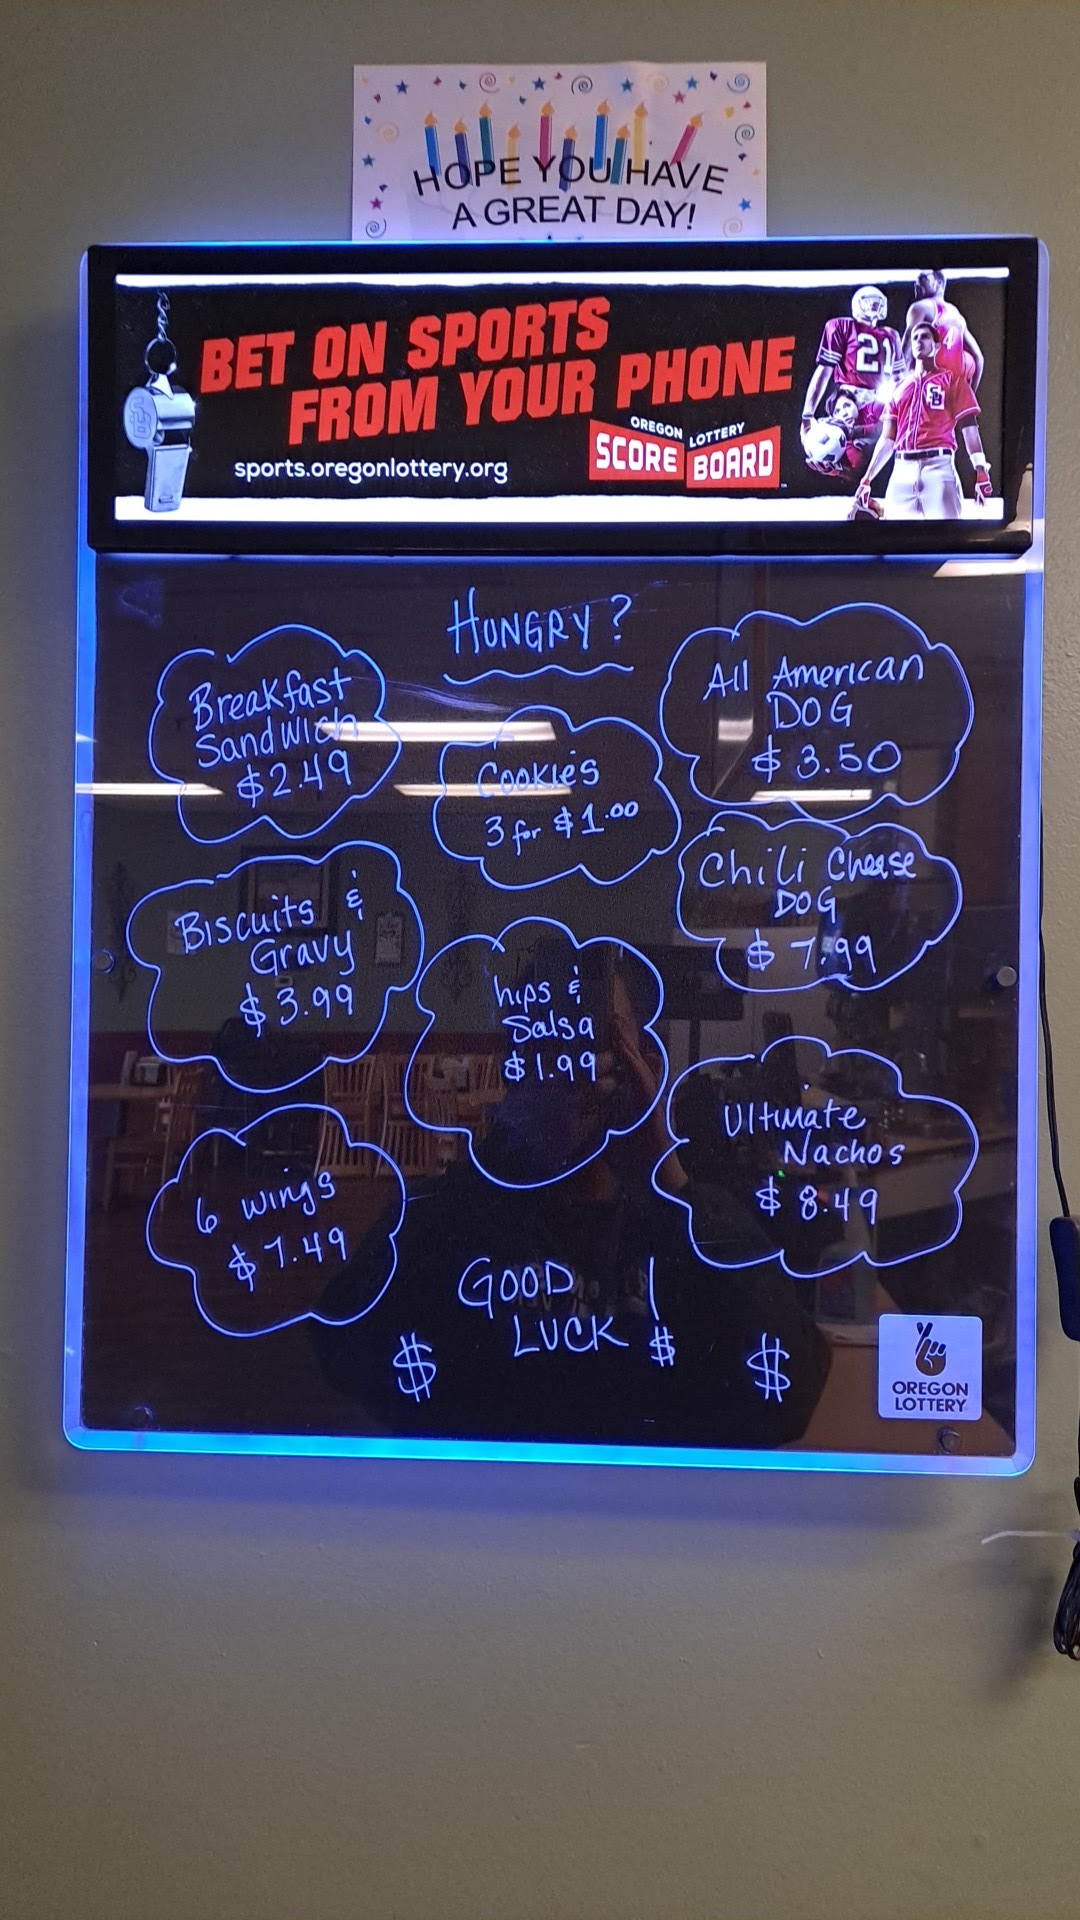 HOPE YOU HAVE
A GREAT DAY!
BET ON SPORTS
FROM YOUR PHONE
sports.oregonlottery.org
OREGON LOTTERY
SCORE BOARD
21
4
SB
HUNGRY?
Breakfast
Sandwich
$2.49
Cookies
3 for $1.00
All American
DOG
$3.50
Biscuits &
Gravy
$3.99
hips &
Salsa
$1.99
Chili Cheese
DOG
$7.99
6 wings
$7.49
Ultimate
Nachos
$8.49
GOOD
LUCK!
$ $ $
OREGON
LOTTERY